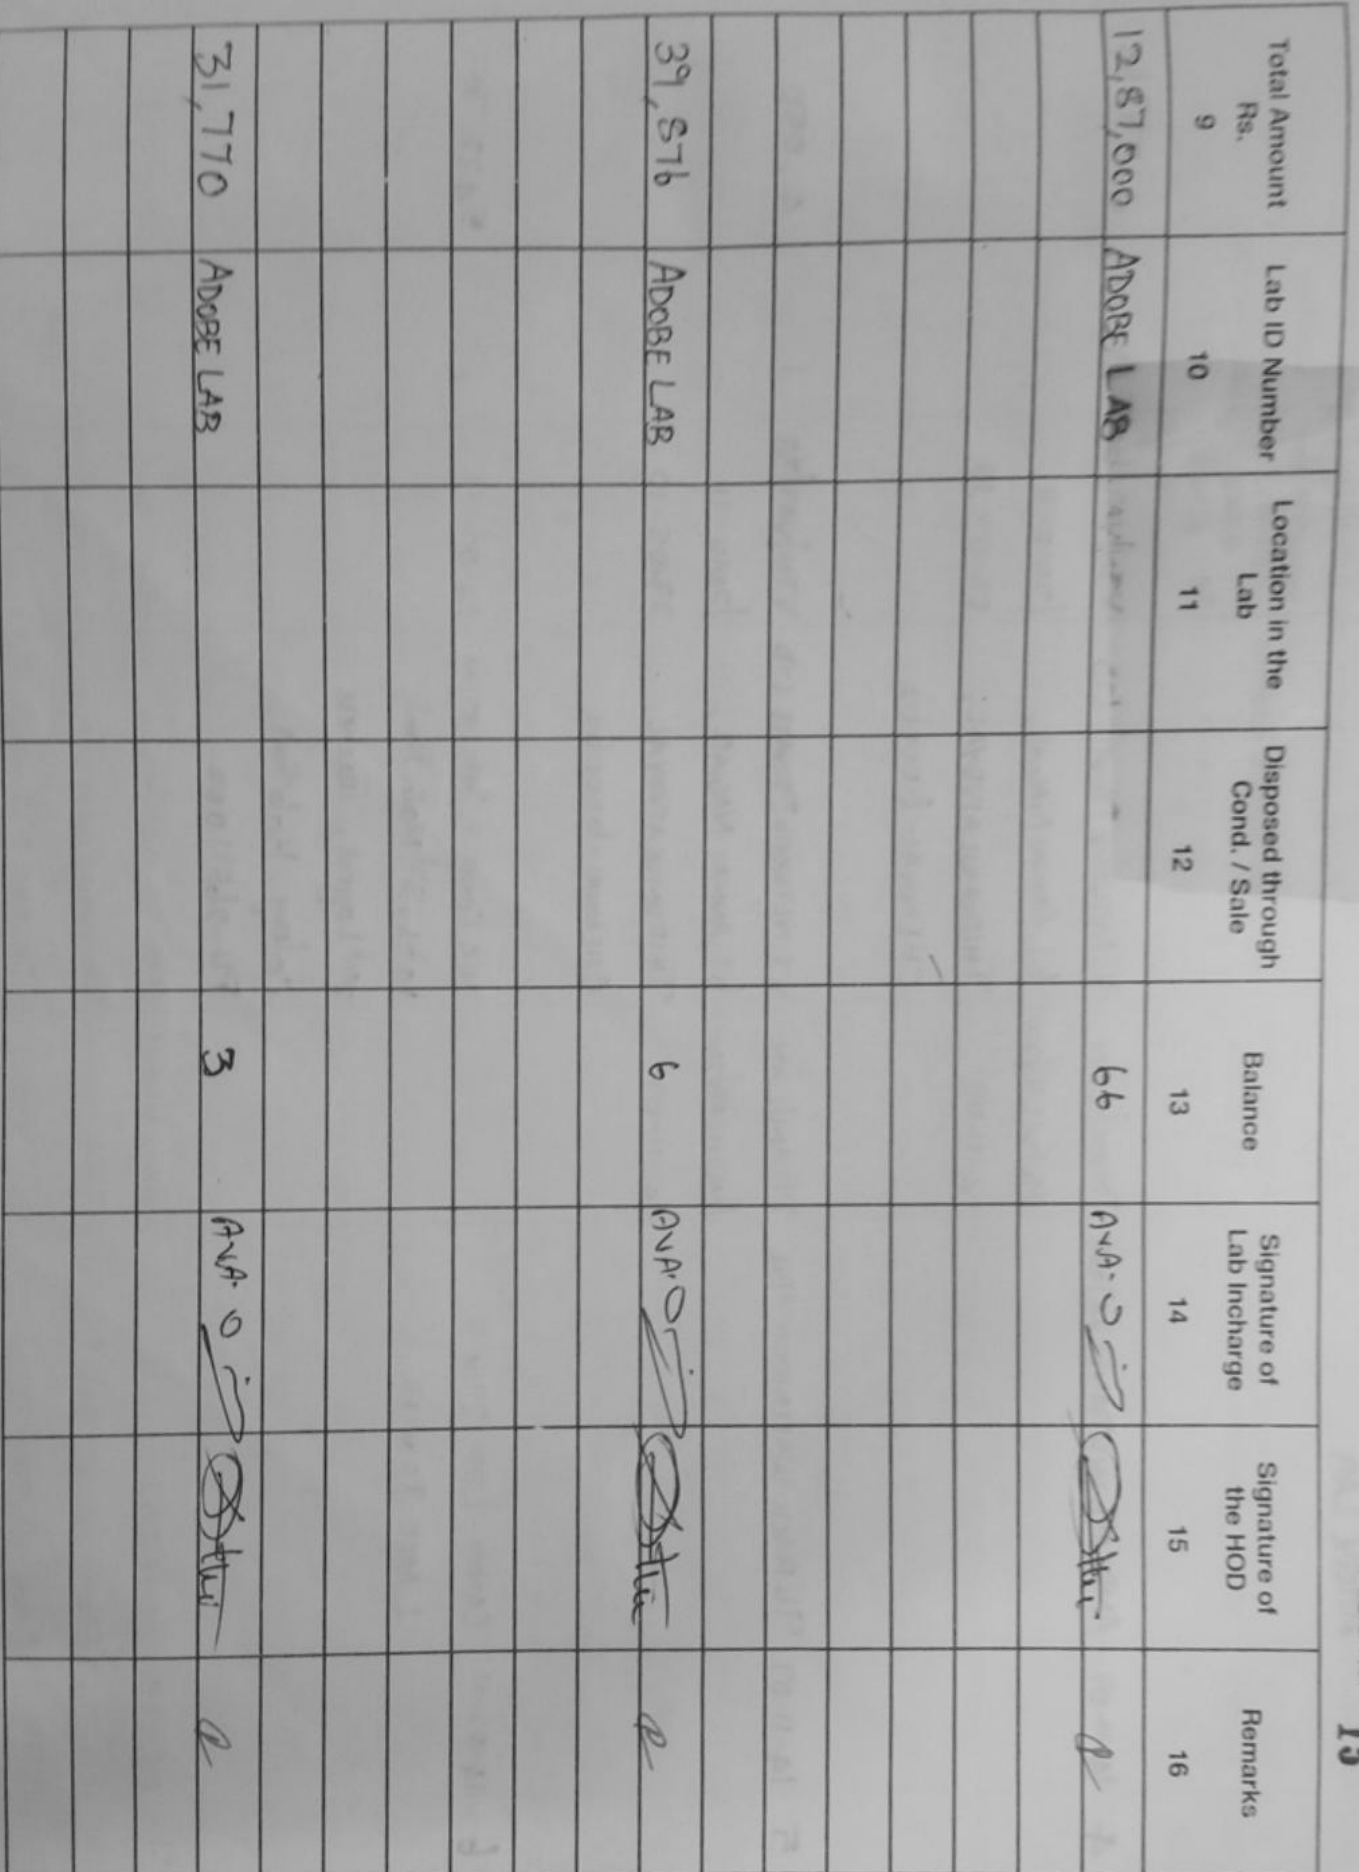 15
Total Amount Rs. Lab ID Number Location in the Lab Disposed through Cond. / Sale Balance Signature of Lab Incharge Signature of the HOD Remarks
9 10 11 12 13 14 15 16
12,87,000 ADOBE LAB 66 AVA.
39,876 ADOBE LAB 6 AVA.
31,770 ADOBE LAB 3 AVA.